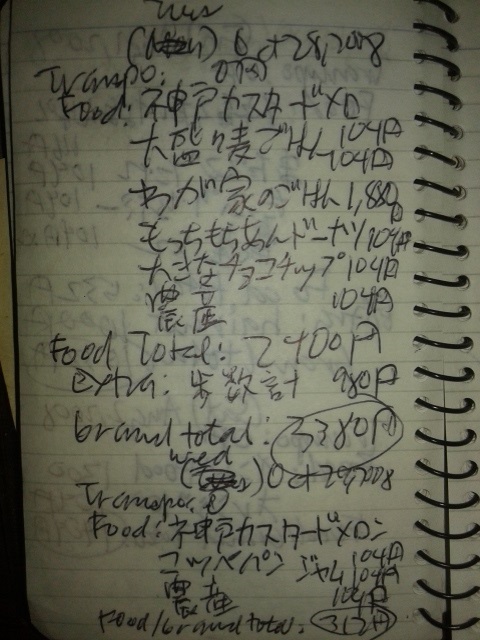 Tues
Oct 28, 2008
Transpo: 0円
Food: 神戸カスタードメロ
104円
大盛り麦ごはん 104円
わが家のごはん 1,880
もっちもちあんドーナツ 104円
大きなチョコチップ 104円
農産 104円
Food Total: 2400円
extra: 歩数計 980円
Grand total: 3380円
wed
Oct 29, 2008
Transpo: 0
Food: 神戸カスタードメロン
104円
コッペパン ジャム 104円
農産 104円
Food/Grand total: 312円